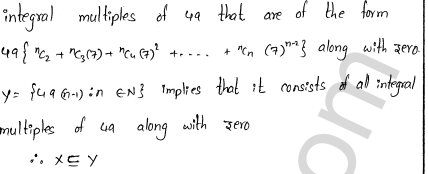 integral multiples of 49 that are of the form
49{ ⁿC₂ + ⁿC₃(7) + ⁿC₄(7)² +..... + ⁿCₙ (7)ⁿ⁻²} along with zero.
Y = {49(n-1) : n ∈ N} implies that it consists of all integral
multiples of 49 along with zero
∴ X ⊆ Y
om